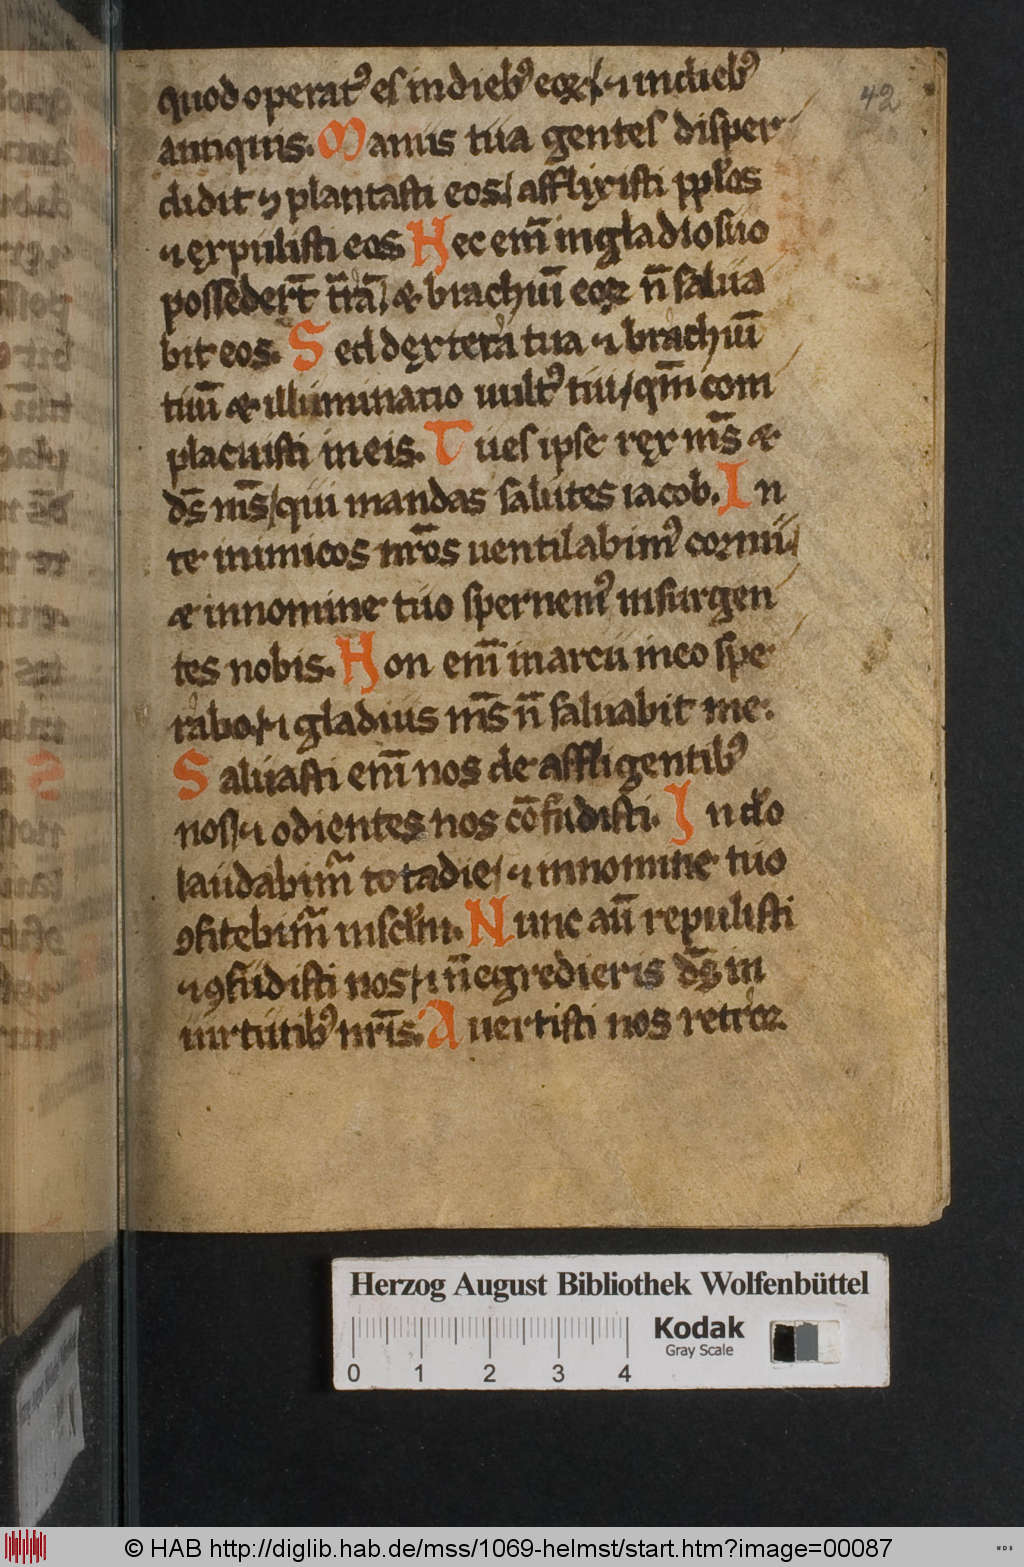 quod operatꝰ es in diebꝰ eoꝝ ⁊ in diebꝰ
antiquis. Manus tua gentes disper
didit ⁊ plantasti eos / afflixisti pplos
⁊ expulisti eos. Nec em̄ in gladio suo
possedert̄ tr̄ā / & brachiū eoꝝ n̄ salua
bit eos. Sed dextera tua ⁊ brachiū
tuū & illuminatio uultꝰ tui / qm̄ com
placuisti in eis. Tu es ipse rex ms̄ &
ds̄ ms̄ / qui mandas salutes iacob. In
te inimicos nr̄os uentilabimꝰ cornu /
& in nomine tuo spernemꝰ insurgen
tes nobis. Non em̄ in arcu meo spe
rabo / ⁊ gladius ms̄ n̄ saluabit me.
Saluasti em̄ nos de affligentibꝰ
nos / ⁊ odientes nos cōfudisti. In do
laudabimꝰ tota die / ⁊ in nomine tuo
ꝯfitebimꝰ in sclm. Nunc aū repulisti
⁊ ꝯfudisti nos / ⁊ n̄ egredieris ds̄ in
uirtutibꝰ nr̄is. Auertisti nos retroꝝ
42
Herzog August Bibliothek Wolfenbüttel
Kodak
Gray Scale
0 1 2 3 4
© HAB http://diglib.hab.de/mss/1069-helmst/start.htm?image=00087